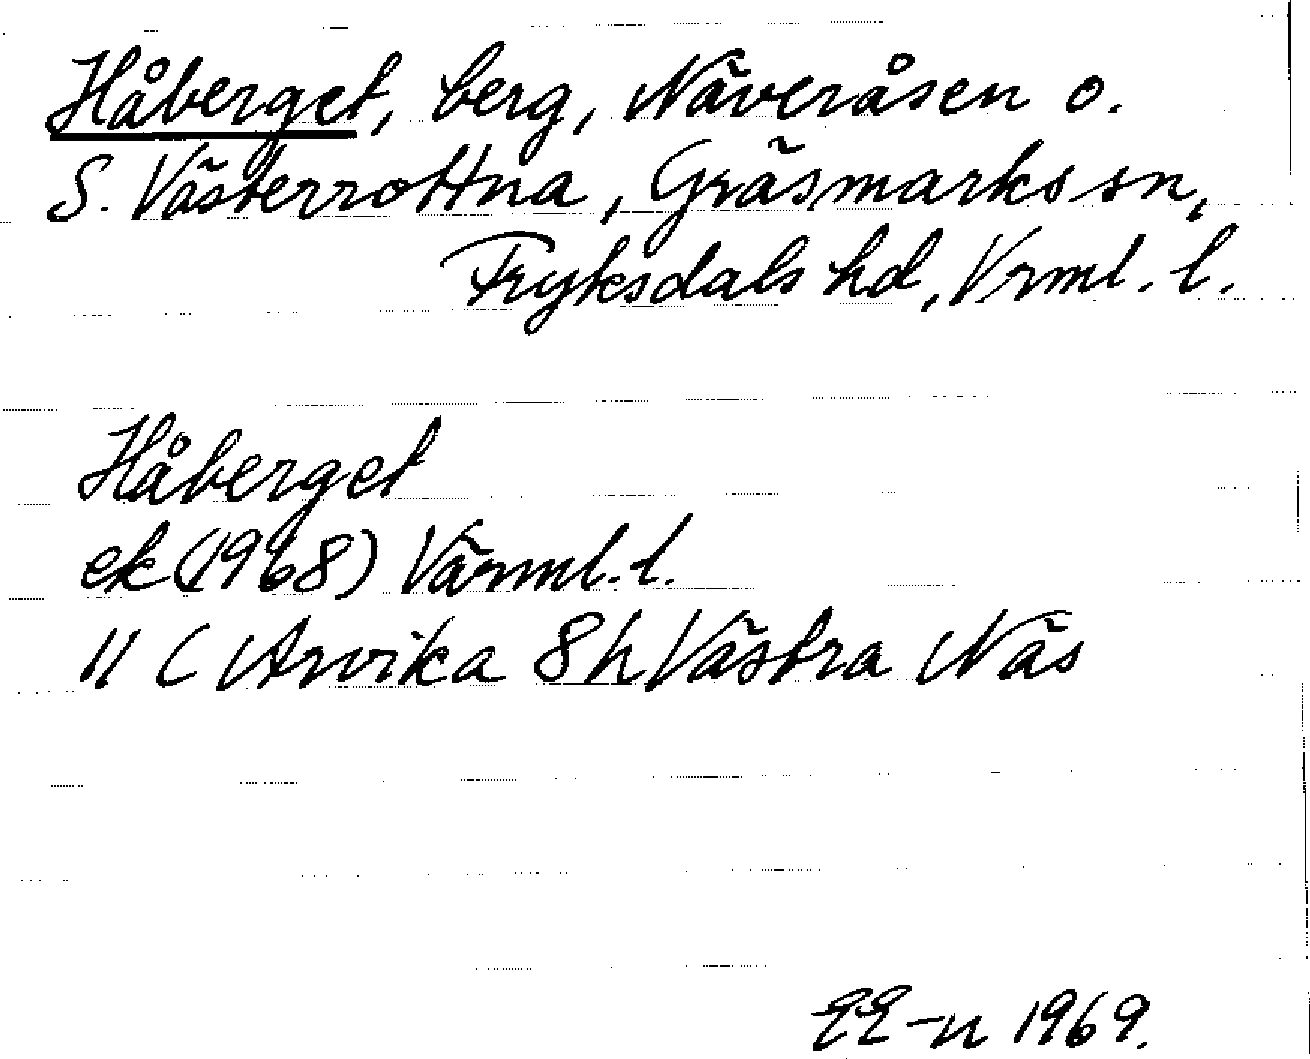 Håberget, berg, Näveråsen o.
S. Västerrottna, Gräsmarks sn,
Fryksdals hd, Vrml. l.
Håberget
ek (1968) Värml. l.
11 C Arvika 8 h Västra Näs
EE-n 1969.